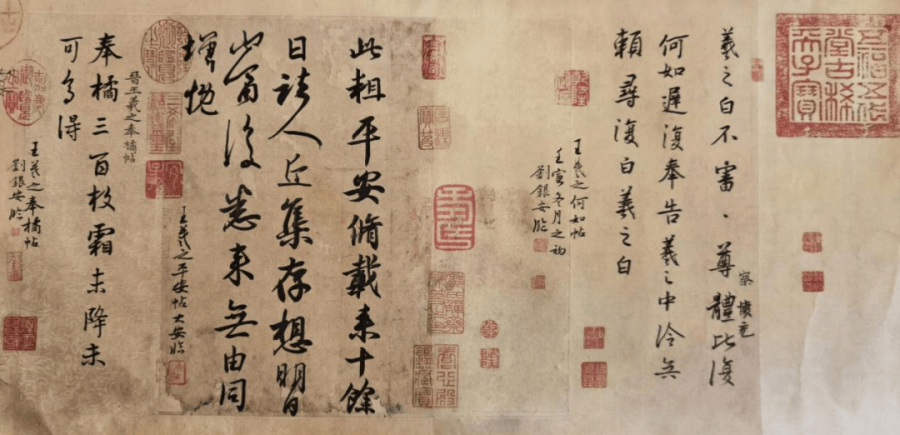 羲之白不審、尊體比復
察懷充
何如遲復奉告羲之中冷無
賴尋復白羲之白
王羲之何如帖
壬寅冬月之初
劉銀安臨
此粗平安脩載来十餘
日諸人近集存想明日
當復悉来無由同
增慨
王羲之平安帖大安臨
晉王羲之奉橘帖
奉橘三百枚霜未降未
可多得
王羲之奉橘帖
劉銀安臨